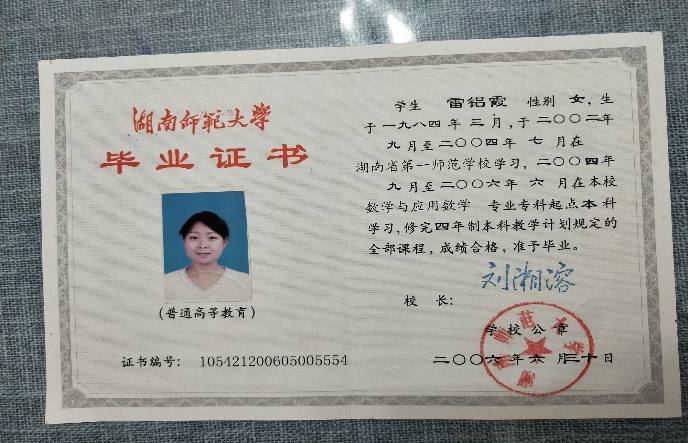 湖南师范大学
毕业证书
(普通高等教育)
证书编号: 105421200605005554
学生 雷铝霞 性别 女,生
于一九八四年 三 月,于 二〇〇二年
九 月至二〇〇四年 七 月在
湖南省第一师范学校学习,二〇〇四年
九 月至二〇〇六年 六 月在本校
数学与应用数学 专业专科起点本科
学习,修完四年制本科教学计划规定的
全部课程,成绩合格,准予毕业。
校 长: 刘湘溶
学校公章
二〇〇六 年 六 月 三十日